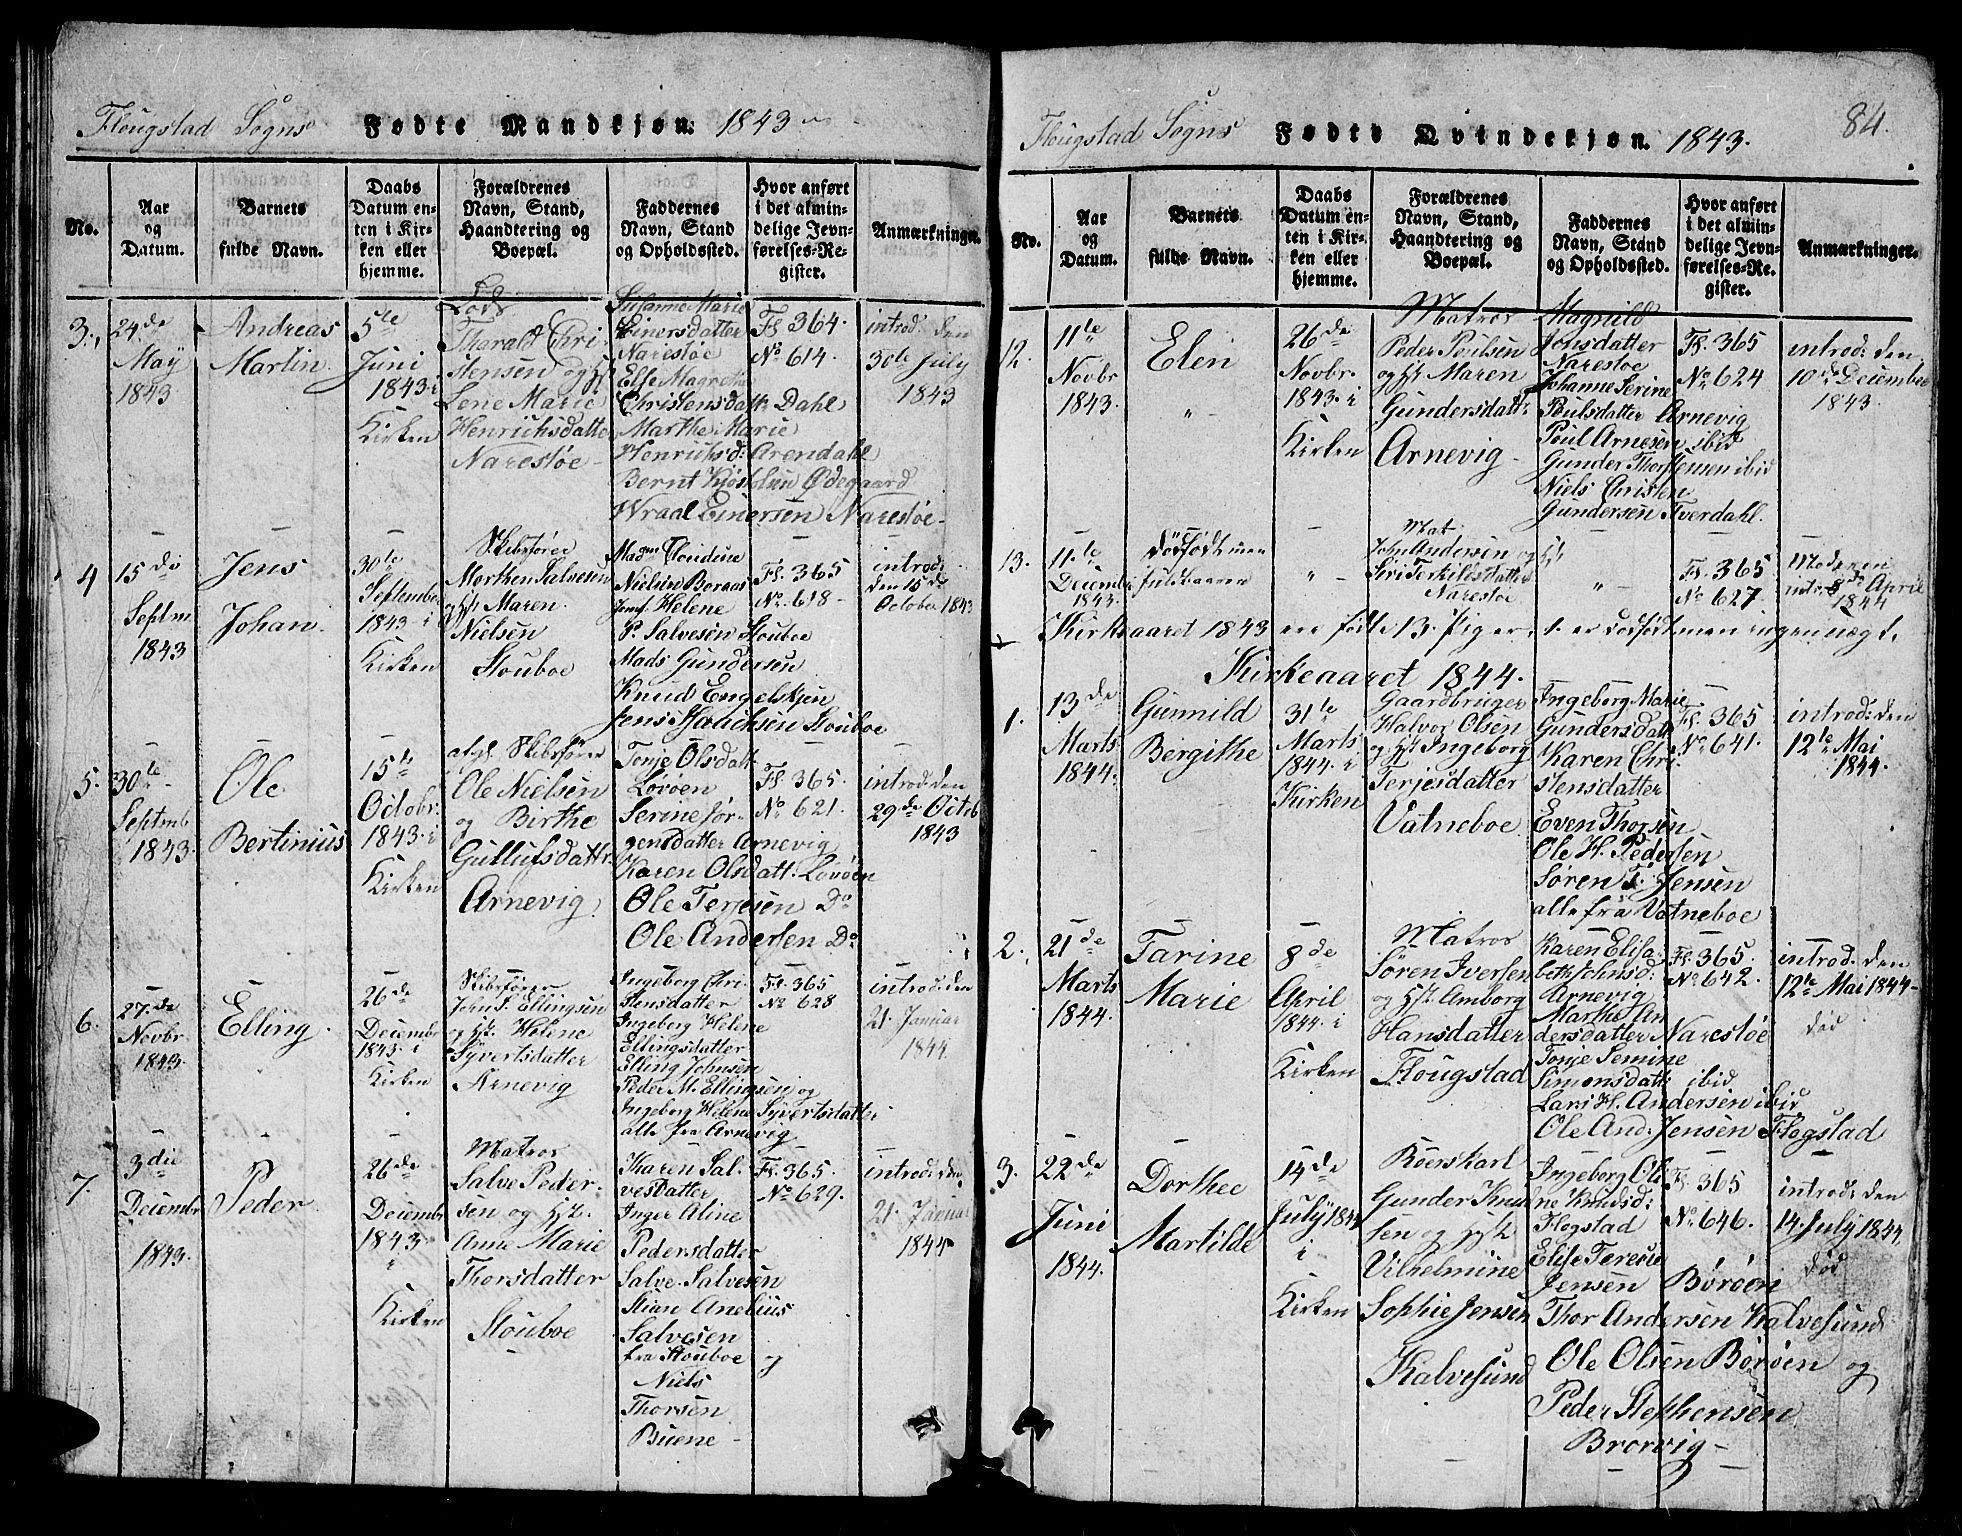 Flougstad Sogns Fødte Mandkjøn. 1843
No.
Aar
og
Datum.
Barnets
fulde Navn.
Daabs
Datum en-
ten i Kir-
ken eller
hjemme.
Forældrenes
Navn, Stand,
Haandtering og
Boepæl.
Faddernes
Navn, Stand
og Opholdssted.
Hvor anført
i det almin-
delige Jevn-
førelses-Re-
gister.
Anmærkninger.
3.
24de
May
1843
Andreas
Martin
5te
Juni
1843 i
Kirken
Lods
Tharald Chri-
stensen og H
Lene Marie
Henrichsdatter
Narestøe
Susanne Marie
Einersdatter
Narestøe
Else Magrethe
Christensdatt: Dahl
Marthe Marie
Henrichsd: Arendahl
Bernt Kjøstolsen Ødegaard
Wraal Einersen Narestøe
Fl 364.
No 614.
introd: den
30te July
1843
4
15de
Septm
1843
Jens
Johan.
30te
September
1843 i
Kirken
Skibsfører
Morthen Salvesen
og H Maren
Nielsen
Stouboe
Nielsen Boraas
Jomf. Helene
P. Salvesen Stouboe
Mads Gundersen
Knud Engelskjen
Fl. 365
No 618
introd:
den 15de
October 1843
5.
30te
Septmb
1843.
Ole
Bertinius
15de
Octobr
1843 i
Kirken
Skibsfører
Ole Nielsen
og Birthe
Gullufsdattr
Arnevig
Tonje Olsdatt
Lovøen
Serine Jør-
gensdatter Arnevig
Karen Olsdatt: Lovøen
Ole Terjesen Do
Ole Andersen Do
Fl 365.
No 621.
introd: den
29de Octb
1843
6.
27.de
Novbr
1843
Elling
26de
Decembr
1843 i
Kirken
Skibsfører
John S. Ellingsen
og H: Helene
Syvertsdatter
Arnevig
Ingeborg Chri-
stensdatter
Ingeborg Helene
Ellingsdatter
Elling Johnsen
Peder M. Ellingsen og
Ingeborg Helene Syvertsdatter
alle fra Arnevig
Fl. 365
No 628
introd: den
21. Januar
1844
7.
3die
Decembr
1843.
Peder
26de
Decembr
1843
i
Kirken
Matros
Salve Peder-
sen og H:
Anne Marie
Thorsdatter
Stouboe
Karen Sal-
vesdatter
Inger Aline
Pedersdatter
Salve Salvesen
Stian Anelius
Salvesen
fra Stouboe og
Niels
Thorsen
Buene
Fl. 365.
No 629.
introd: den
21. Januar
1844
Flougstad Sogns Fødte Qvindekjøn. 1843.
84.
No.
Aar
og
Datum.
Barnets
fulde Navn.
Daabs
Datum en-
ten i Kir-
ken eller
hjemme.
Forældrenes
Navn, Stand,
Haandtering og
Boepæl.
Faddernes
Navn, Stand
og Opholdssted.
Hvor anført
i det almin-
delige Jevn-
førelses-Re-
gister.
Anmærkninger.
12
11te
Novbr
1843.
Elen
26de
Novbr.
1843 i
Kirken
Matros
Peder Poulsen
og H Maren
Gundersdattr
Arnevig
Magnild
Jonsdatter
Narestøe
Johanne Serine
Poulsdatter Arnevig
Poul Arnesen ibid
Gunder Thorstensen ibid
Niels Christen
Gundersen Tverdahl.
Fl. 365
No 624
introd: den
10de December
1843.
13.
11te
Decembr
1843.
Dødfødt men
fuldbaaren
Mat
John Andersen og H
Siri Terkildsdatter
Narestøe
Fl. 365
No 627.
Moderen
intr: 8de April
1844
Kirkeaaret 1843 ere fødte 13. Piger, 1. er dødfødt men ingen uægte.
Kirkeaaret 1844.
1.
13de
Marts
1844.
Gunnild
Bergithe
31te
Marts
1844 i
Kirken
Gaardbruger
Halvor Olsen
og H Ingeborg
Terjesdatter
Vatneboe
Ingeborg Marie
Gundersdatt
Karen Chri-
stensdatter
Even Thorsen
Ole H. Pedersen
Søren Jensen
alle fra Vatneboe
Fl. 365
No 641.
introd: den
12te Mai
1844.
2.
21de
Marts
1844.
Tarine
Marie
8de
April
1844 i
Kirken
Matros
Søren Iversen
og H: Amborg
Hansdatter
Flougstad
Karen Elisa-
beth Johnsd:
Arnevig
Marthe An-
dersdatter Narestøe
Tonje Semine
Simonsdatt: ibid
Lars H. Andersen ibid
Ole And: Jensen Flogstad
Fl. 365.
No 642.
introd: den
12te Mai 1844
død
3.
22de
Juni
1844.
Dorthee
Martilde
14de
July 1844
i
Kirken
Røerskarl
Gunder Knud-
sen og H
Vilhelmine
Sophie Jensen
Kalvesund
Ingeborg Oli-
ne Knudsd:
Flogstad
Elise Terecie
Jensen Børøen
Thor Andersen Kalvesund
Ole Olsen Børøen og
Peder Stephensen
Brorvig
Fl. 365
No 646.
introd: den
14. July 1844
død